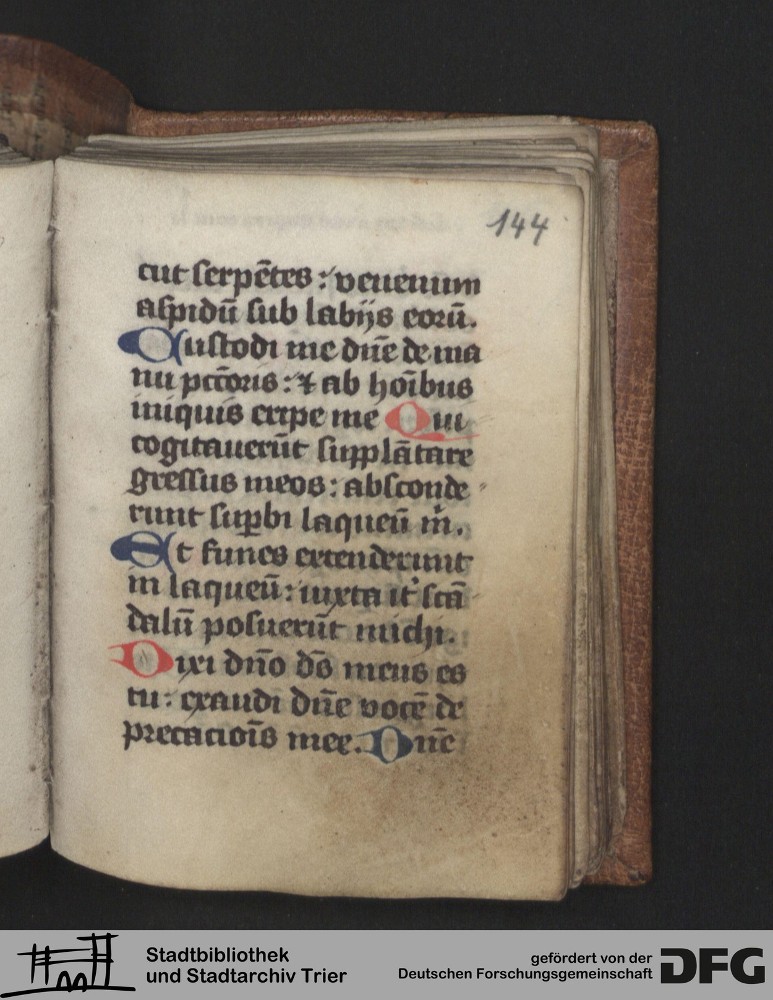 144
cut serpe͂tes : venenum
aspidū sub labijs eorū.
Custodi me dn̄e de ma
nu pctōris : ⁊ ab hoı̄bus
iniquis eripe me Qui
cogitauerūt supplātare
gressus meos : absconde
runt suꝑbi laqueū m̄.
Et funes extenderunt
in laqueū : iuxta it᷒ scā
dalū posuerūt michi.
Dixi dn̄o ds̄ meus es
tu : exaudi dn̄e vocē de
precacioı̄s mee. Dn̄e
Stadtbibliothek
und Stadtarchiv Trier
gefördert von der
Deutschen Forschungsgemeinschaft
DFG